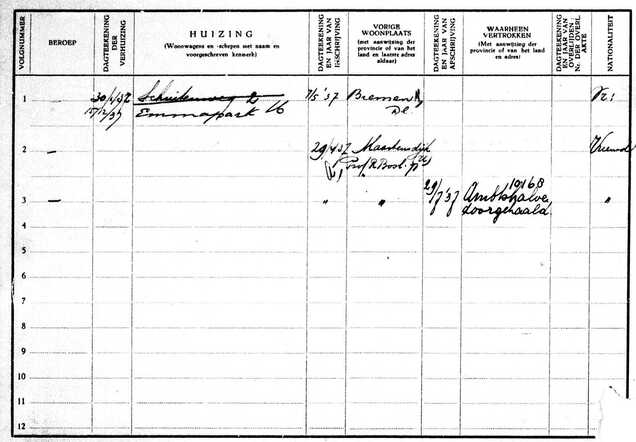 VOLGNUMMER
BEROEP
DAGTEEKENING DER VERHUIZING
HUIZING
(Woonwagens en -schepen met naam en voorgeschreven kenmerk)
DAGTEEKENING EN JAAR VAN INSCHRIJVING
VORIGE WOONPLAATS
(met aanwijzing der provincie of van het land en laatste adres aldaar)
DAGTEEKENING EN JAAR VAN AFSCHRIJVING
WAARHEEN VERTROKKEN
(Met aanwijzing der provincie of van het land en adres)
DAGTEEKENING EN JAAR VAN OVERLIJDEN; Nr. DER OVERL. AKTE
NATIONALITEIT
1 7/5 '37 Bremen
15/12/37 Emmapark 16
2 — 29/4/37 Maartensdijk Vreemde
19168
3 — " " 29/7 '37 Ambtshalve "
doorgehaald
4
5
6
7
8
9
10
11
12